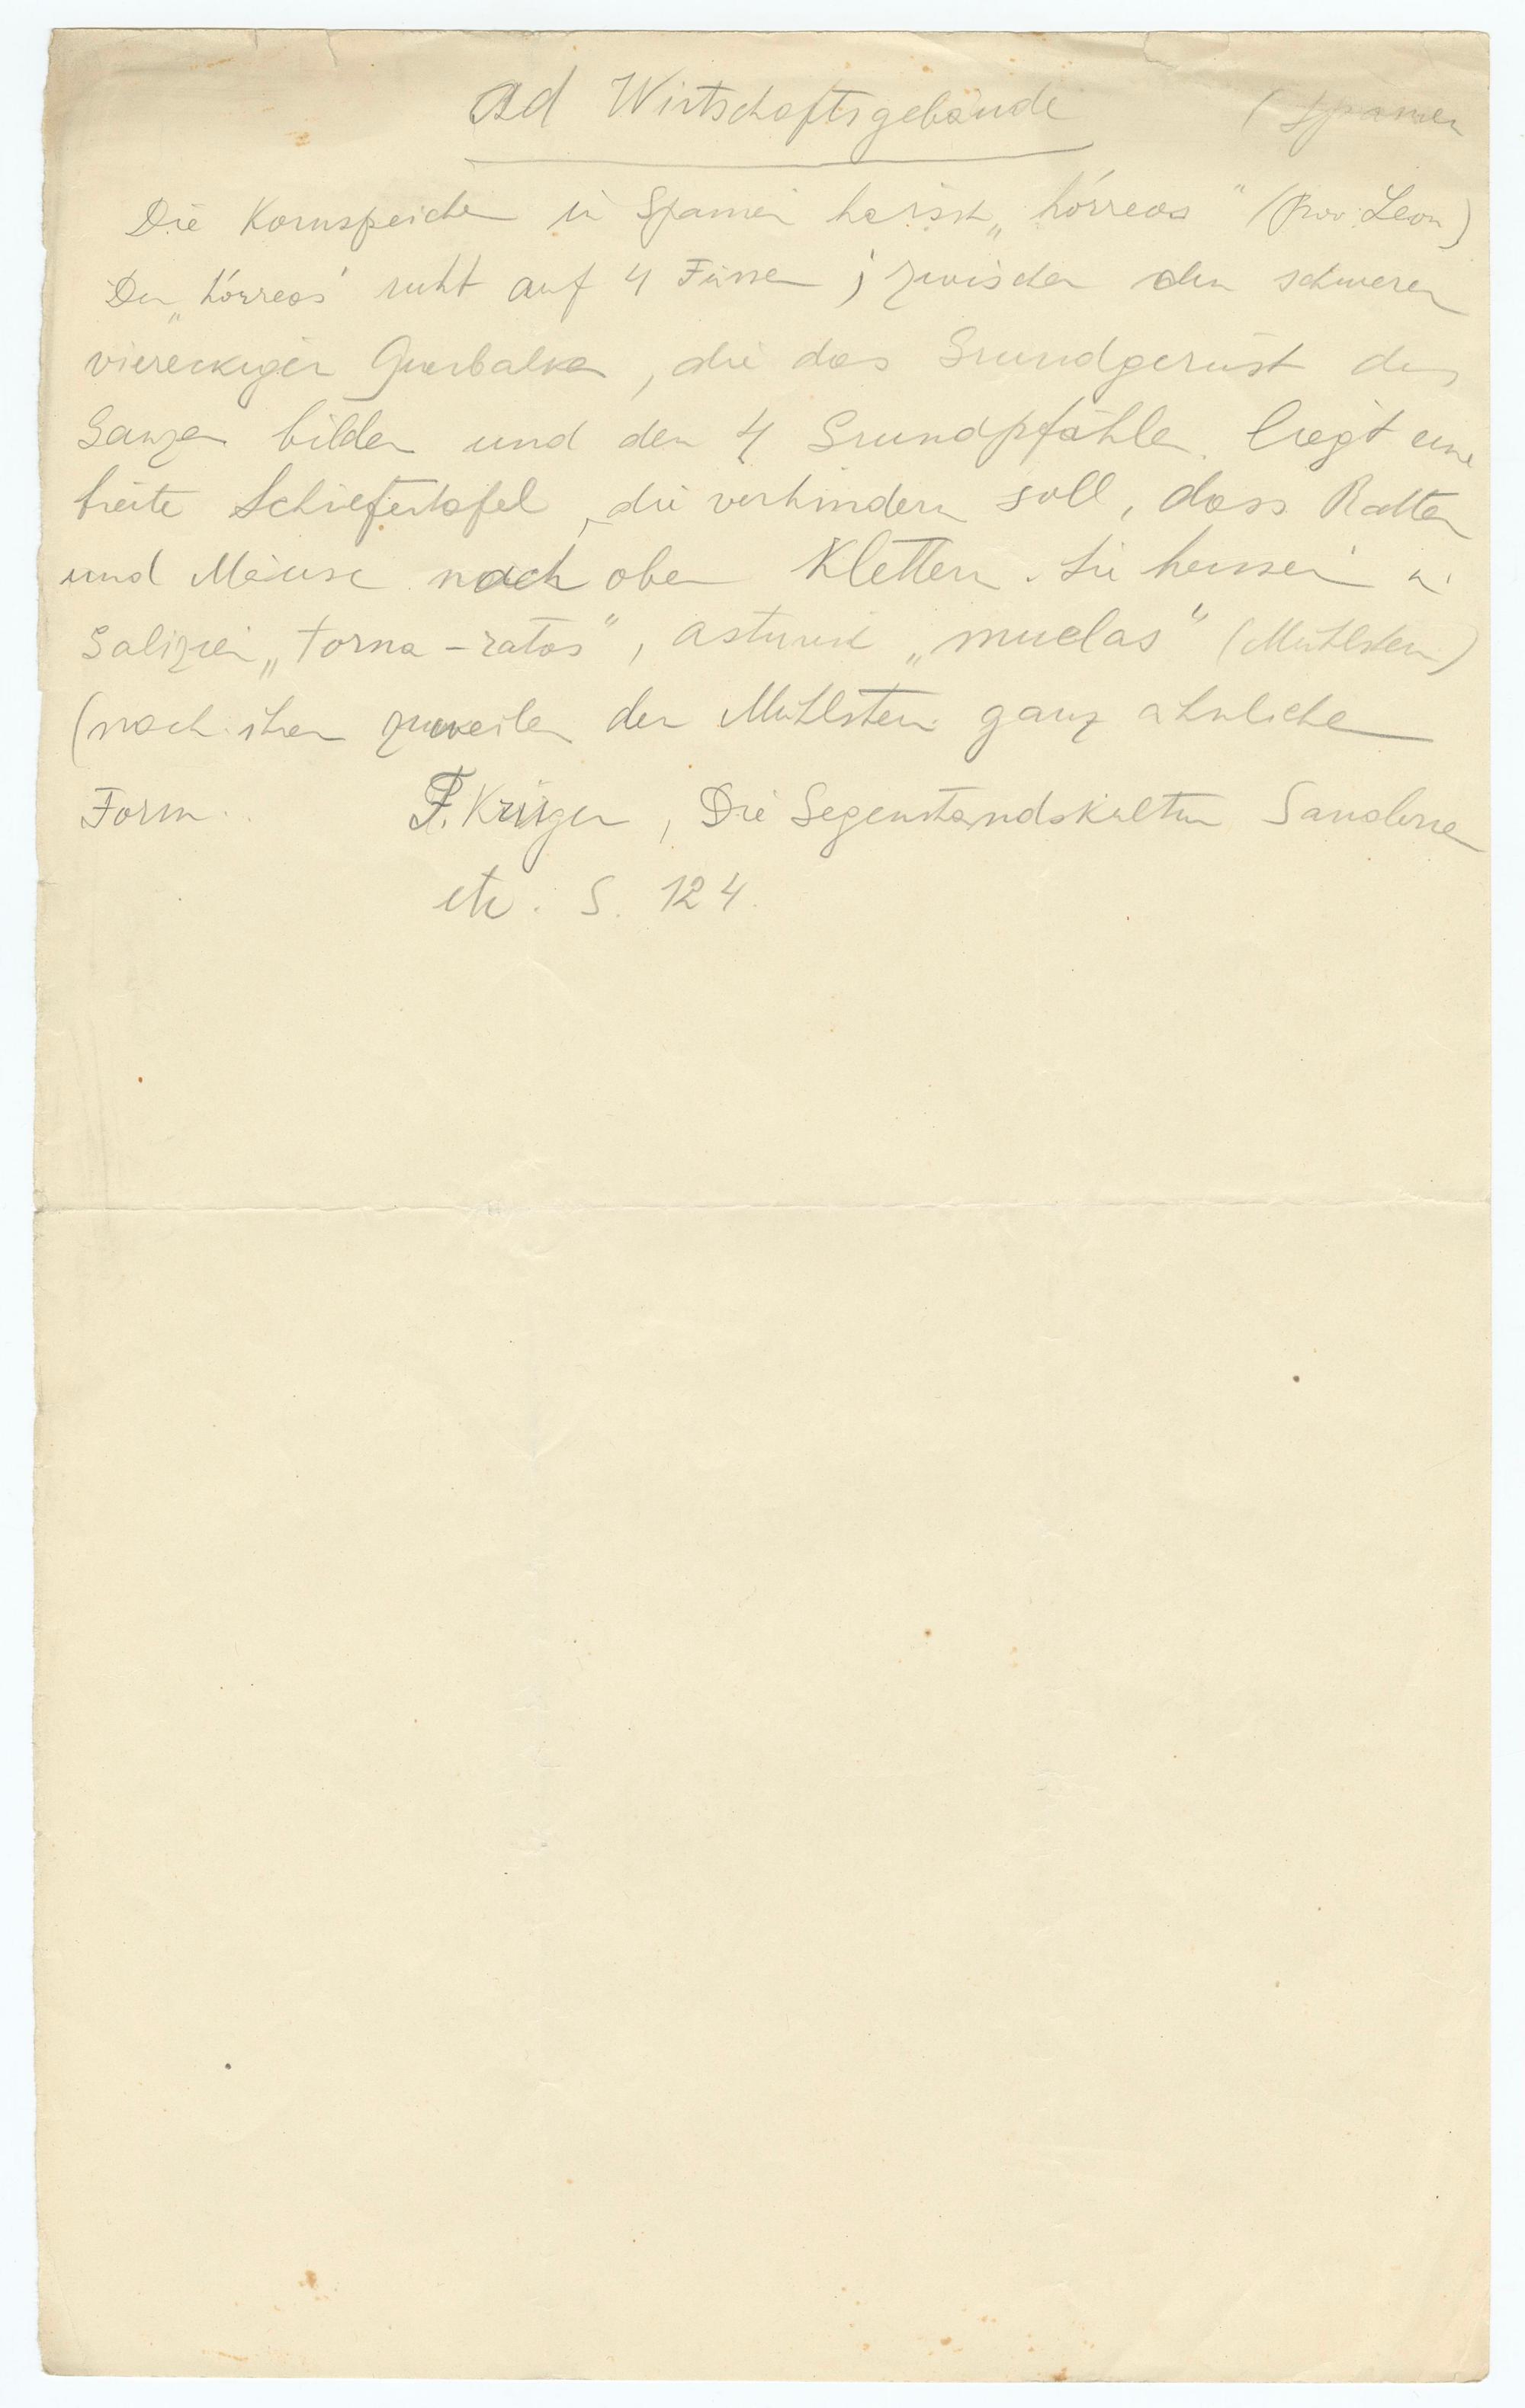 Ad Wirtschaftsgebäude (Spanien
Die Kornspeicher in Spanien heisst „hórreos" (Prov. Leon)
Der „hórreos" ruht auf 4 Füssen; zwischen den schweren
viereckigen Querbalken, die das Grundgerüst des
Ganzen bilden und den 4 Grundpfählen liegt eine
breite Schiefertafel, die verhindern soll, dass Ratten
und Mäuse nach oben klettern. Sie heissen in
Galizien „torna-ratos", asturisch „muelas" (Mühlstein)
(nach ihrer zuweilen den Mühlstein ganz ähnliche
Form. F. Krüger, Die Gegenstandskultur Sanabrias
etc. S. 124.